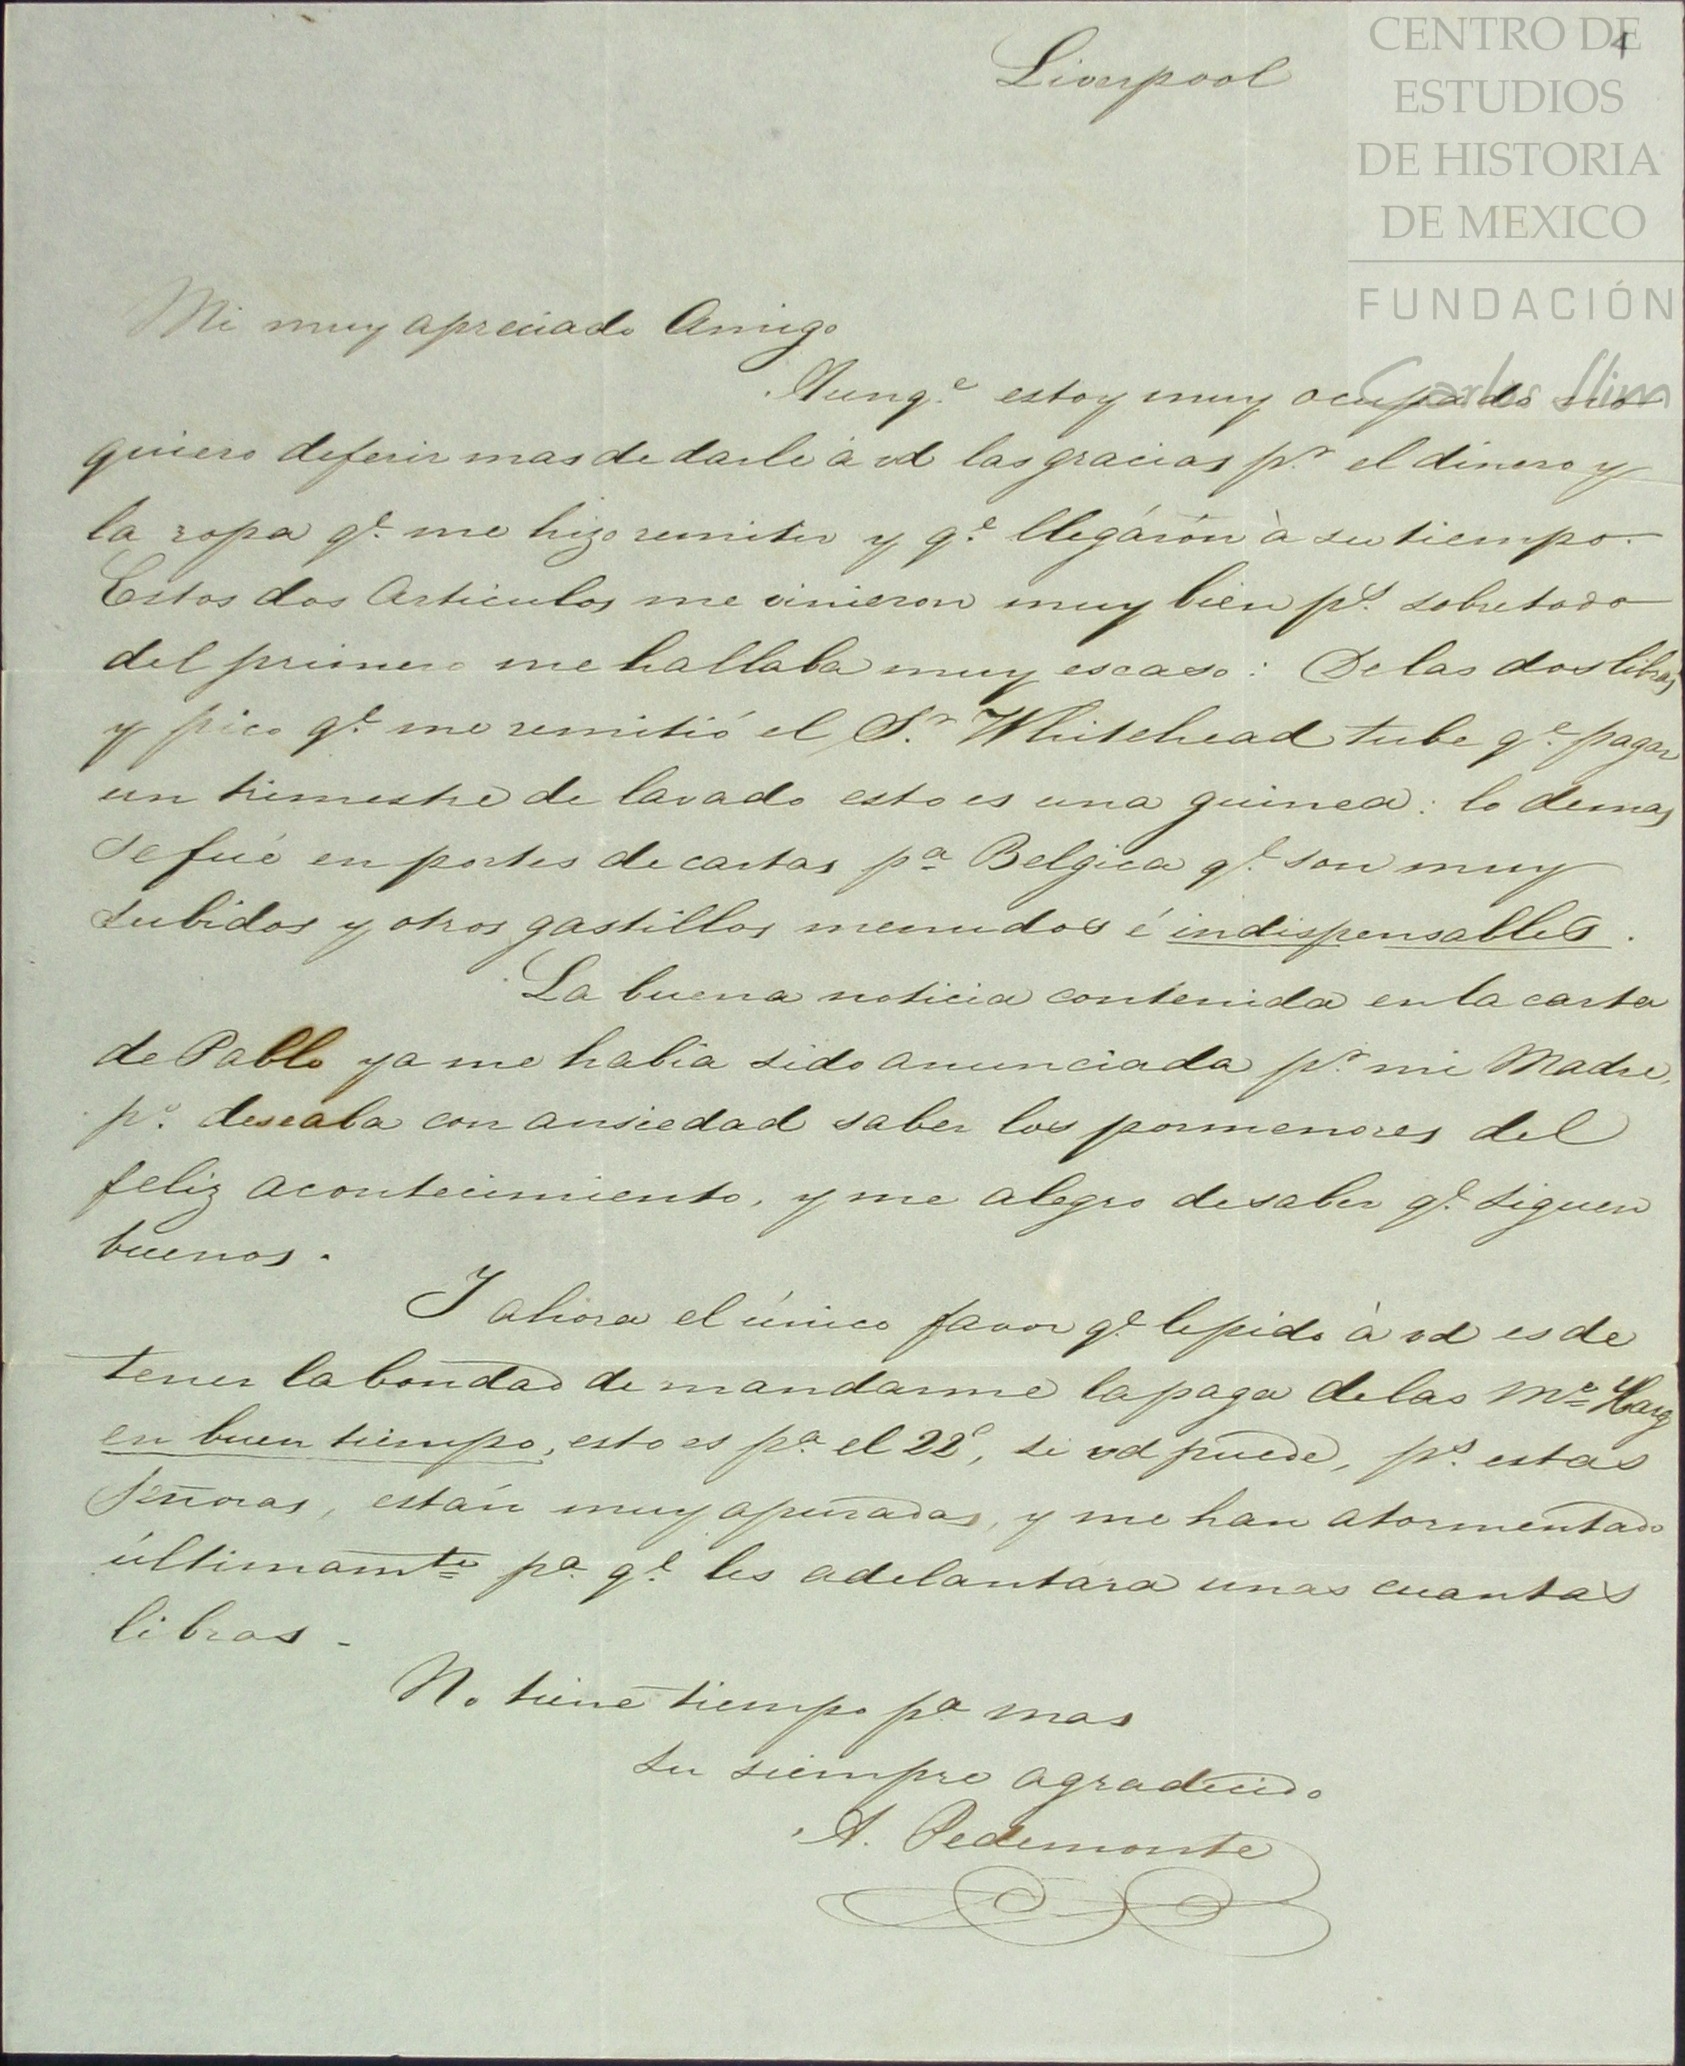 Liverpool
4
CENTRO DE
ESTUDIOS
DE HISTORIA
DE MEXICO
FUNDACIÓN
Carlos Slim
Mi muy apreciado Amigo
Aunq.e estoy muy ocupado no
quiero deferir mas de darle á vd las gracias p.r el dinero y
la ropa q.e me hizo remitir y q.e llegáron à su tiempo.
Estos dos Articulos me vinieron muy bien p.s sobretodo
del primero me hallaba muy escaso: De las dos libras
y pico q.e me remitió el S.r Whitehead tube q.e pagar
un trimestre de lavado esto es una guinea: lo demas
se fué en portes de cartas p.a Belgica q.e son muy
subidos y otros gastillos menudos é indispensables.
La buena noticia contenida en la carta
de Pablo ya me habia sido anunciada p.r mi Madre,
p.o deseaba con ansiedad saber los pormenores del
feliz acontecimiento, y me alegro de saber q.e siguen
buenos.
I ahora el único favor q.e le pido à vd es de
tener la bondad de mandarme la paga de las M.s
en buen tiempo, esto es p.a el 22, si vd puede, p.s estas
Señoras, están muy apuradas, y me han atormentado
últimam.te p.a q.e les adelantára unas cuantas
libras.
No tiene tiempo p.a mas
su siempre agradecido
A. Pedemonte